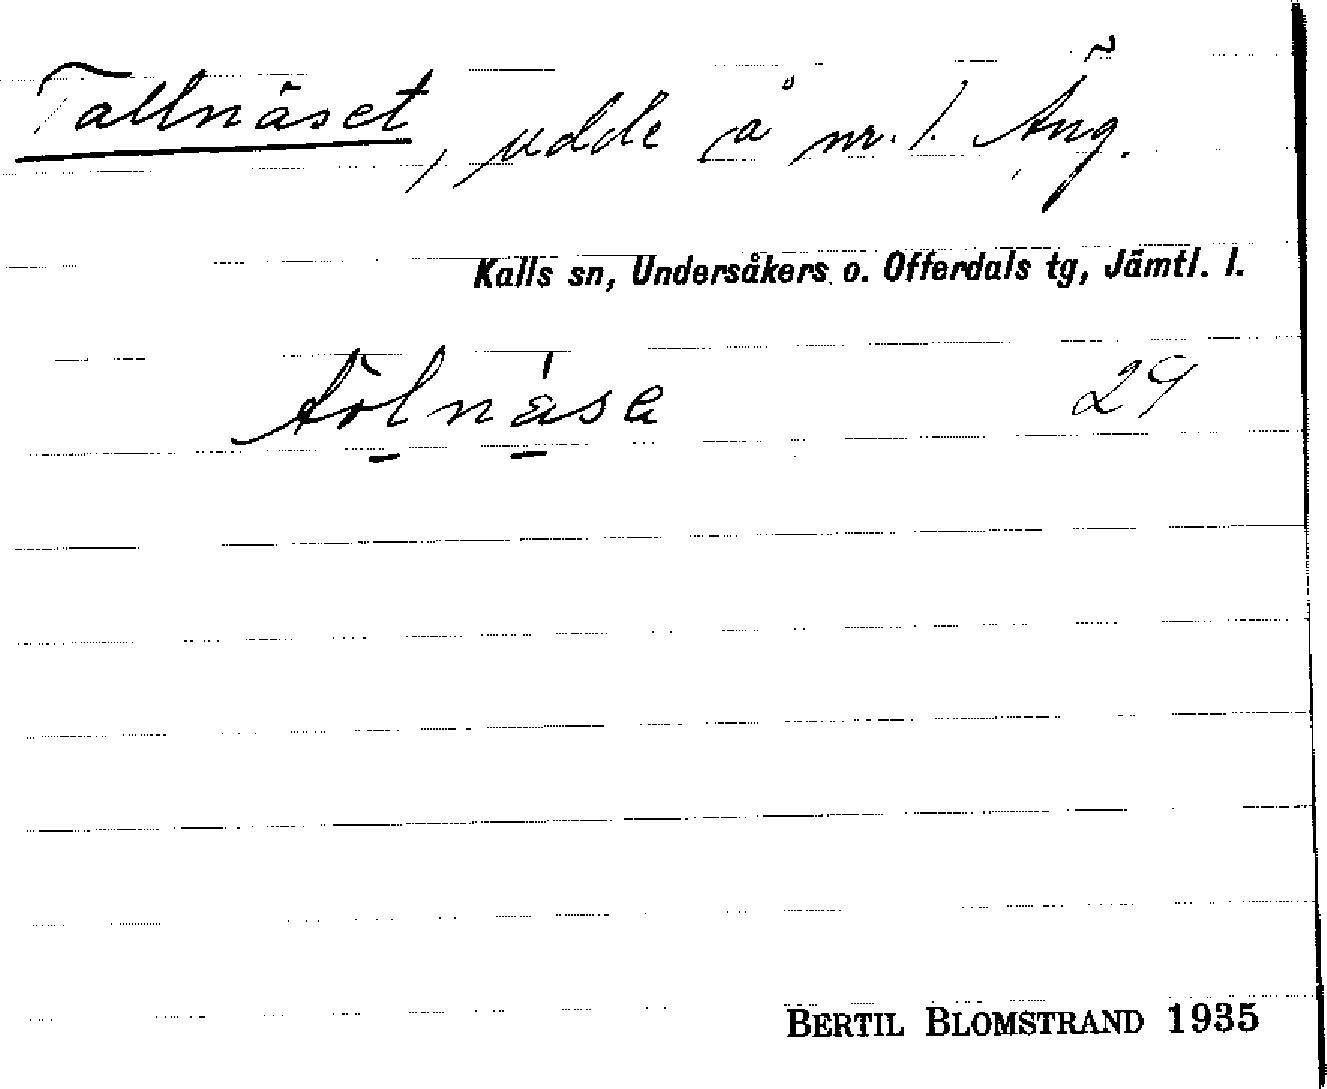 Tallnäset, udde å nr. 1. Äng.
Kalls sn, Undersåkers o. Offerdals tg, Jämtl. l.
29
BERTIL BLOMSTRAND 1935